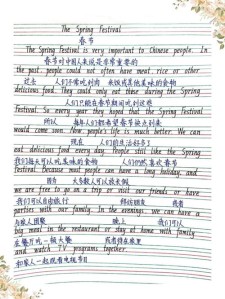 The Spring Festival
春节
The Spring Festival is very important to Chinese people. In
春节对中国人来说是非常重要的
the past, people could not often have meat, rice or other
过去 人们不常吃到肉 米饭或其他美味的食物
delicious food. They could only eat these during the Spring
人们只能在春节期间吃到这些
Festival. So every year they hoped that the Spring Festival
所以 每年人们都希望春节快点到来
would come soon. Now people's life is much better. We can
现在 人们的生活好多了
eat delicious food every day. People still like the Spring
我们每天可以吃美味的食物 人们仍然喜欢春节
Festival, because most people can have a long holiday, and
因为 大多数人可以放长假
we are free to go on a trip or visit our friends or have
我们可以自由旅行 拜访朋友 或者
parties with our family. In the evenings, we can have a
与家人团聚 晚上 我们可以
big meal in the restaurant or stay at home with family
在餐厅吃一顿大餐 或者待在家里
and watch TV programs together.
和家人一起观看电视节目